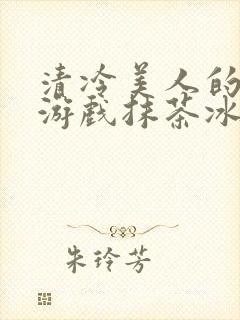 清冷美人的
游戏抹茶冰
朱玲芳